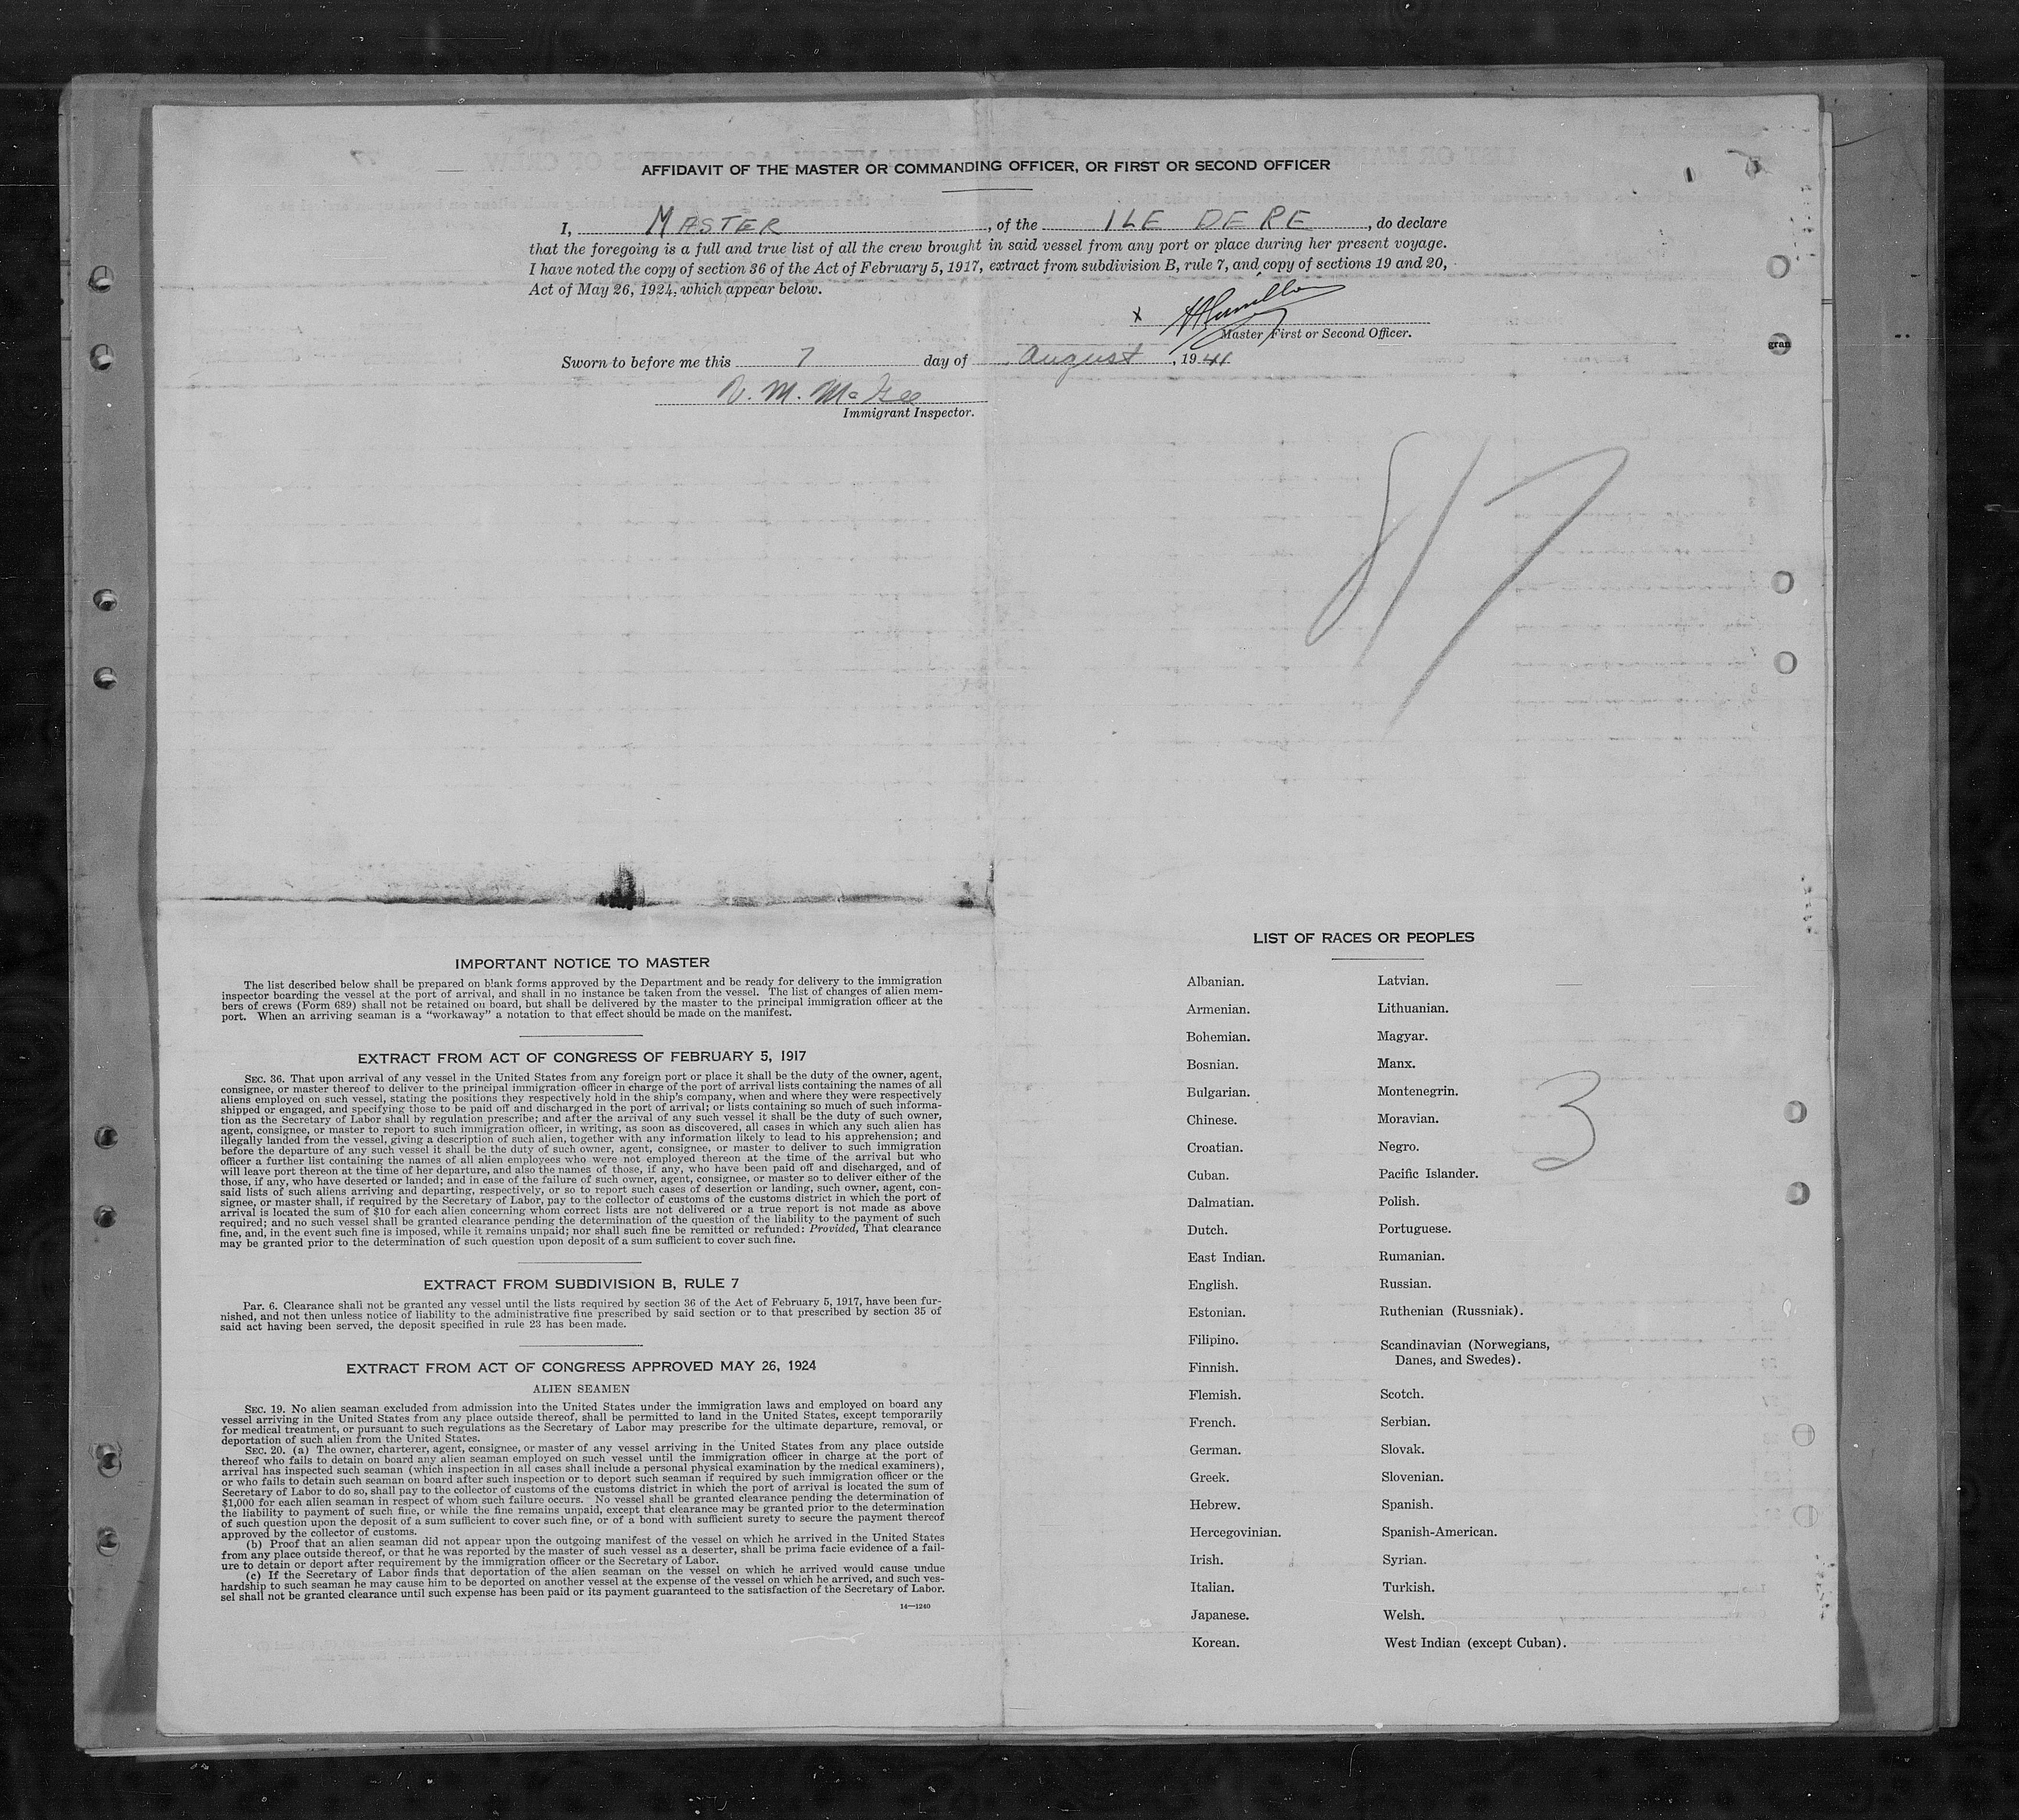 AFFIDAVIT OF THE MASTER OR COMMANDING OFFICER, OR FIRST OR SECOND OFFICER
I, MASTER, of the ILE DE RE, do declare
that the foregoing is a full and true list of all the crew brought in said vessel from any port or place during her present voyage.
I have noted the copy of section 36 of the Act of February 5, 1917, extract from subdivision B, rule 7, and copy of sections 19 and 20,
Act of May 26, 1924, which appear below.
x
Master First or Second Officer.
Sworn to before me this 7 day of August, 1941
M. McGee
Immigrant Inspector.
gran
8/7
IMPORTANT NOTICE TO MASTER
The list described below shall be prepared on blank forms approved by the Department and be ready for delivery to the immigration
inspector boarding the vessel at the port of arrival, and shall in no instance be taken from the vessel. The list of changes of alien mem-
bers of crews (Form 689) shall not be retained on board, but shall be delivered by the master to the principal immigration officer at the
port. When an arriving seaman is a "workaway" a notation to that effect should be made on the manifest.
EXTRACT FROM ACT OF CONGRESS OF FEBRUARY 5, 1917
SEC. 36. That upon arrival of any vessel in the United States from any foreign port or place it shall be the duty of the owner, agent,
consignee, or master thereof to deliver to the principal immigration officer in charge of the port of arrival lists containing the names of all
aliens employed on such vessel, stating the positions they respectively hold in the ship's company, when and where they were respectively
shipped or engaged, and specifying those to be paid off and discharged in the port of arrival; or lists containing so much of such informa-
tion as the Secretary of Labor shall by regulation prescribe; and after the arrival of any such vessel it shall be the duty of such owner,
agent, consignee, or master to report to such immigration officer, in writing, as soon as discovered, all cases in which any such alien has
illegally landed from the vessel, giving a description of such alien, together with any information likely to lead to his apprehension; and
before the departure of any such vessel it shall be the duty of such owner, agent, consignee, or master to deliver to such immigration
officer a further list containing the names of all alien employees who were not employed thereon at the time of the arrival but who
will leave port thereon at the time of her departure, and also the names of those, if any, who have been paid off and discharged, and of
those, if any, who have deserted or landed; and in case of the failure of such owner, agent, consignee, or master so to deliver either of the
said lists of such aliens arriving and departing, respectively, or so to report such cases of desertion or landing, such owner, agent, con-
signee, or master shall, if required by the Secretary of Labor, pay to the collector of customs of the customs district in which the port of
arrival is located the sum of $10 for each alien concerning whom correct lists are not delivered or a true report is not made as above
required; and no such vessel shall be granted clearance pending the determination of the question of the liability to the payment of such
fine, and, in the event such fine is imposed, while it remains unpaid; nor shall such fine be remitted or refunded: Provided, That clearance
may be granted prior to the determination of such question upon deposit of a sum sufficient to cover such fine.
EXTRACT FROM SUBDIVISION B, RULE 7
Par. 6. Clearance shall not be granted any vessel until the lists required by section 36 of the Act of February 5, 1917, have been fur-
nished, and not then unless notice of liability to the administrative fine prescribed by said section or to that prescribed by section 35 of
said act having been served, the deposit specified in rule 23 has been made.
EXTRACT FROM ACT OF CONGRESS APPROVED MAY 26, 1924
ALIEN SEAMEN
SEC. 19. No alien seaman excluded from admission into the United States under the immigration laws and employed on board any
vessel arriving in the United States from any place outside thereof, shall be permitted to land in the United States, except temporarily
for medical treatment, or pursuant to such regulations as the Secretary of Labor may prescribe for the ultimate departure, removal, or
deportation of such alien from the United States.
SEC. 20. (a) The owner, charterer, agent, consignee, or master of any vessel arriving in the United States from any place outside
thereof who fails to detain on board any alien seaman employed on such vessel until the immigration officer in charge at the port of
arrival has inspected such seaman (which inspection in all cases shall include a personal physical examination by the medical examiners),
or who fails to detain such seaman on board after such inspection or to deport such seaman if required by such immigration officer or the
Secretary of Labor to do so, shall pay to the collector of customs of the customs district in which the port of arrival is located the sum of
$1,000 for each alien seaman in respect of whom such failure occurs. No vessel shall be granted clearance pending the determination of
the liability to payment of such fine, or while the fine remains unpaid, except that clearance may be granted prior to the determination
of such question upon the deposit of a sum sufficient to cover such fine, or of a bond with sufficient surety to secure the payment thereof
approved by the collector of customs.
(b) Proof that an alien seaman did not appear upon the outgoing manifest of the vessel on which he arrived in the United States
from any place outside thereof, or that he was reported by the master of such vessel as a deserter, shall be prima facie evidence of a fail-
ure to detain or deport after requirement by the immigration officer or the Secretary of Labor.
(c) If the Secretary of Labor finds that deportation of the alien seaman on the vessel on which he arrived would cause undue
hardship to such seaman he may cause him to be deported on another vessel at the expense of the vessel on which he arrived, and such ves-
sel shall not be granted clearance until such expense has been paid or its payment guaranteed to the satisfaction of the Secretary of Labor.
14—1240
LIST OF RACES OR PEOPLES
Albanian.
Armenian.
Bohemian.
Bosnian.
Bulgarian.
Chinese.
Croatian.
Cuban.
Dalmatian.
Dutch.
East Indian.
English.
Estonian.
Filipino.
Finnish.
Flemish.
French.
German.
Greek.
Hebrew.
Hercegovinian.
Irish.
Italian.
Japanese.
Korean.
Latvian.
Lithuanian.
Magyar.
Manx.
Montenegrin.
Moravian.
Negro.
Pacific Islander.
Polish.
Portuguese.
Rumanian.
Russian.
Ruthenian (Russniak).
Scandinavian (Norwegians,
Danes, and Swedes).
Scotch.
Serbian.
Slovak.
Slovenian.
Spanish.
Spanish-American.
Syrian.
Turkish.
Welsh.
West Indian (except Cuban).
3